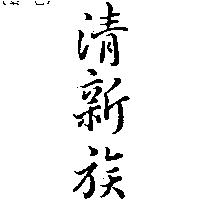 清新族